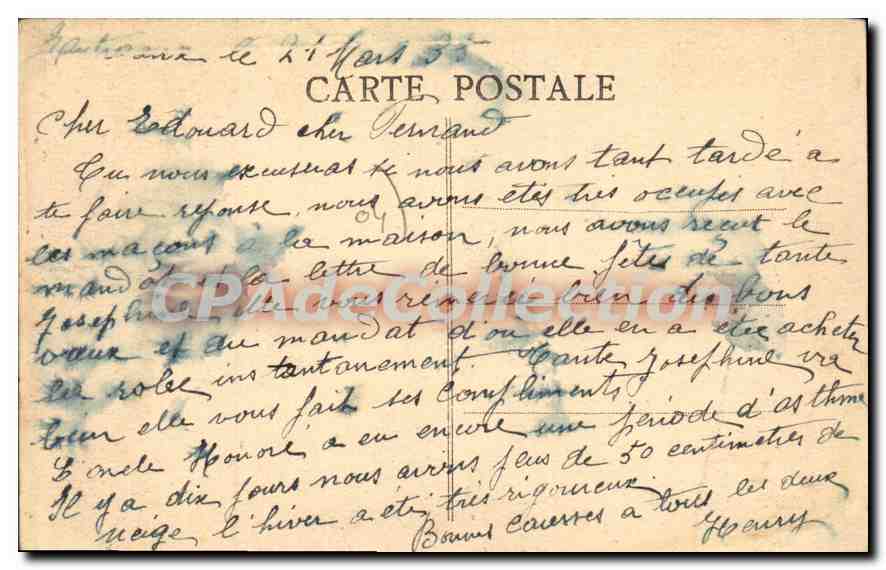 le 21 Mars 35
CARTE POSTALE
Cher Edouard cher Fernand
Tu nous excuseras si nous avons tant tardé a
te faire reponse, nous avons étés très occupés avec
04
les maçons à la maison, nous avons recut le
mandat et la lettre de bonne fêtes de tante
CPADeCollection
Josephine elle vous remercie bien des bons
vœux et du mandat d'ou elle en a étée acheter
la robe instantanement. Tante Josephine va
bien elle vous fait ses compliments
L'oncle Honoré a eu encore une période d'asthme
Il y a dix jours nous avons plus de 50 centimetres de
neige l'hiver a été très rigoureux.
Bonnes caresses a tous les deux
Henry